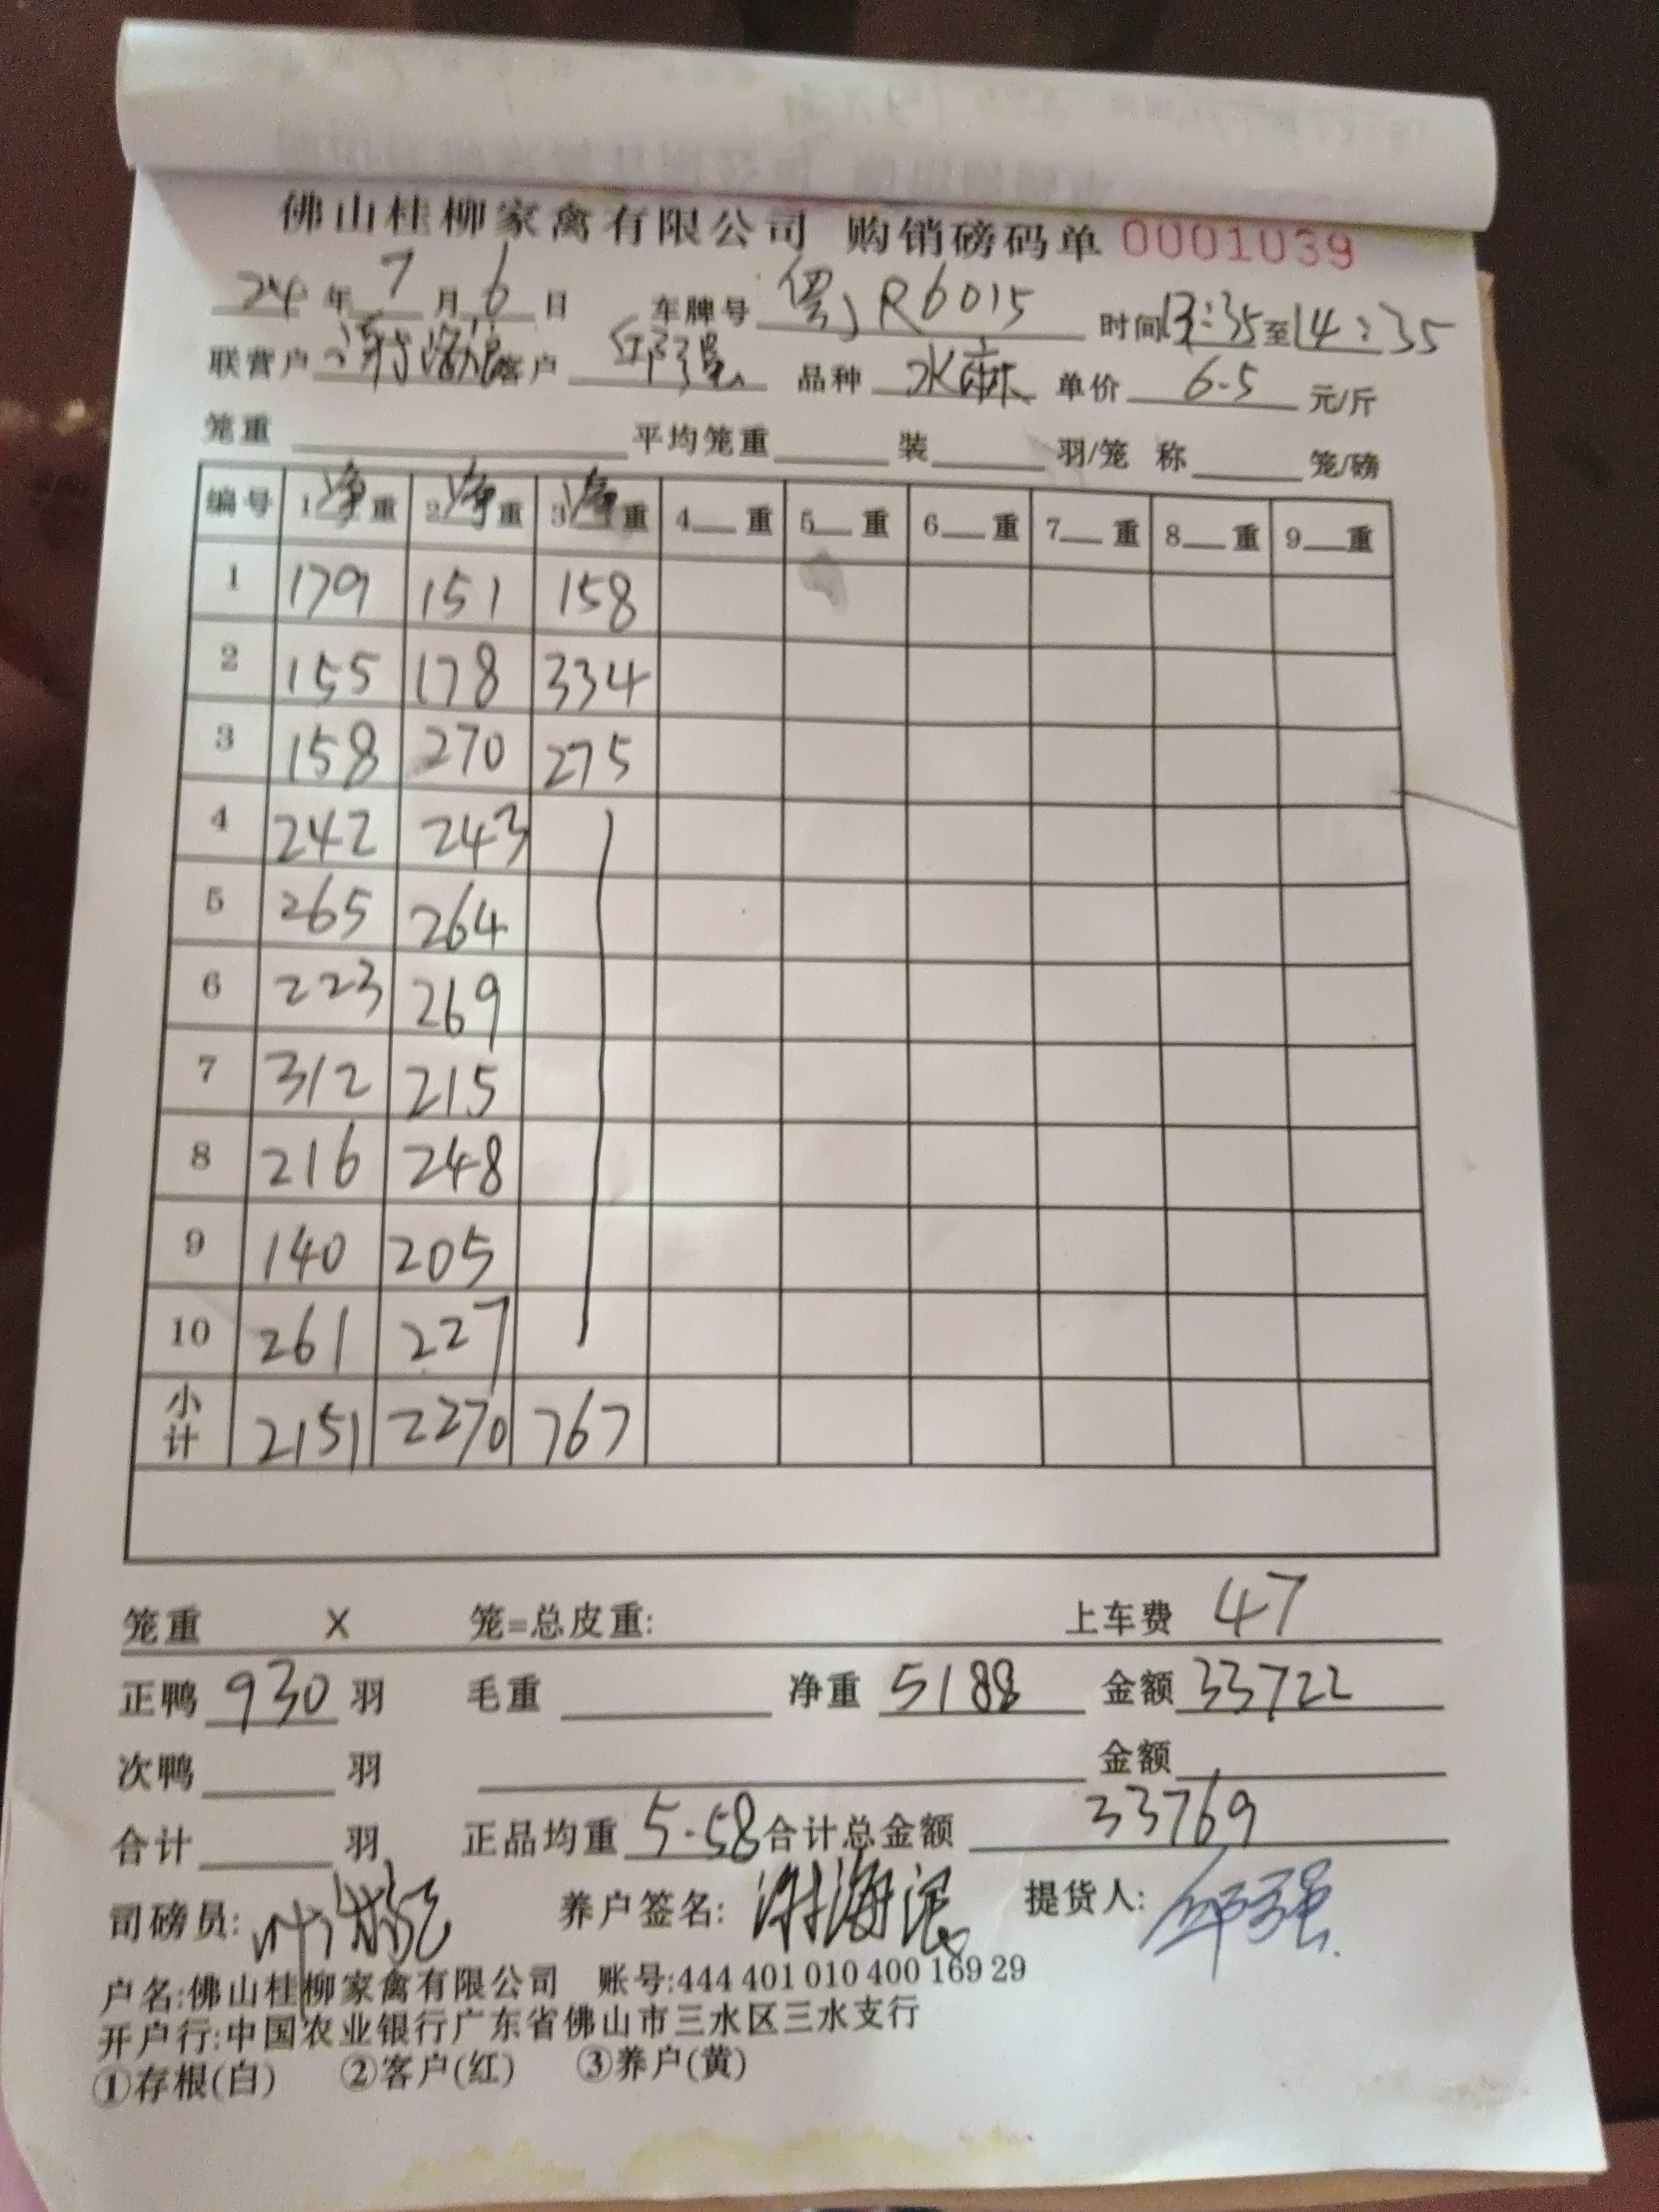 佛山桂柳家禽有限公司 购销磅码单 0001039
24 年 7 月 6 日 车牌号 粤J R6015 时间 13:35 至 14:35
联营户 谢海滨 客户 邱强 品种 水麻 单价 6.5 元/斤
笼重 平均笼重 装 羽/笼 称 笼/磅
编号 1净重 2净重 3净重 4 重 5 重 6 重 7 重 8 重 9 重
1 179 151 158
2 155 178 334
3 158 270 275
4 242 243
5 265 264
6 223 269
7 312 215
8 216 248
9 140 205
10 261 227
小计 2151 2270 767
笼重 X 笼=总皮重: 上车费 47
正鸭 930 羽 毛重 净重 5188 金额 33722
次鸭 羽 金额
合计 羽 正品均重 5.58 合计总金额 33769
司磅员: 养户签名: 谢海滨 提货人: 邱强
户名:佛山桂柳家禽有限公司 账号:444 401 010 400 169 29
开户行:中国农业银行广东省佛山市三水区三水支行
①存根(白) ②客户(红) ③养户(黄)